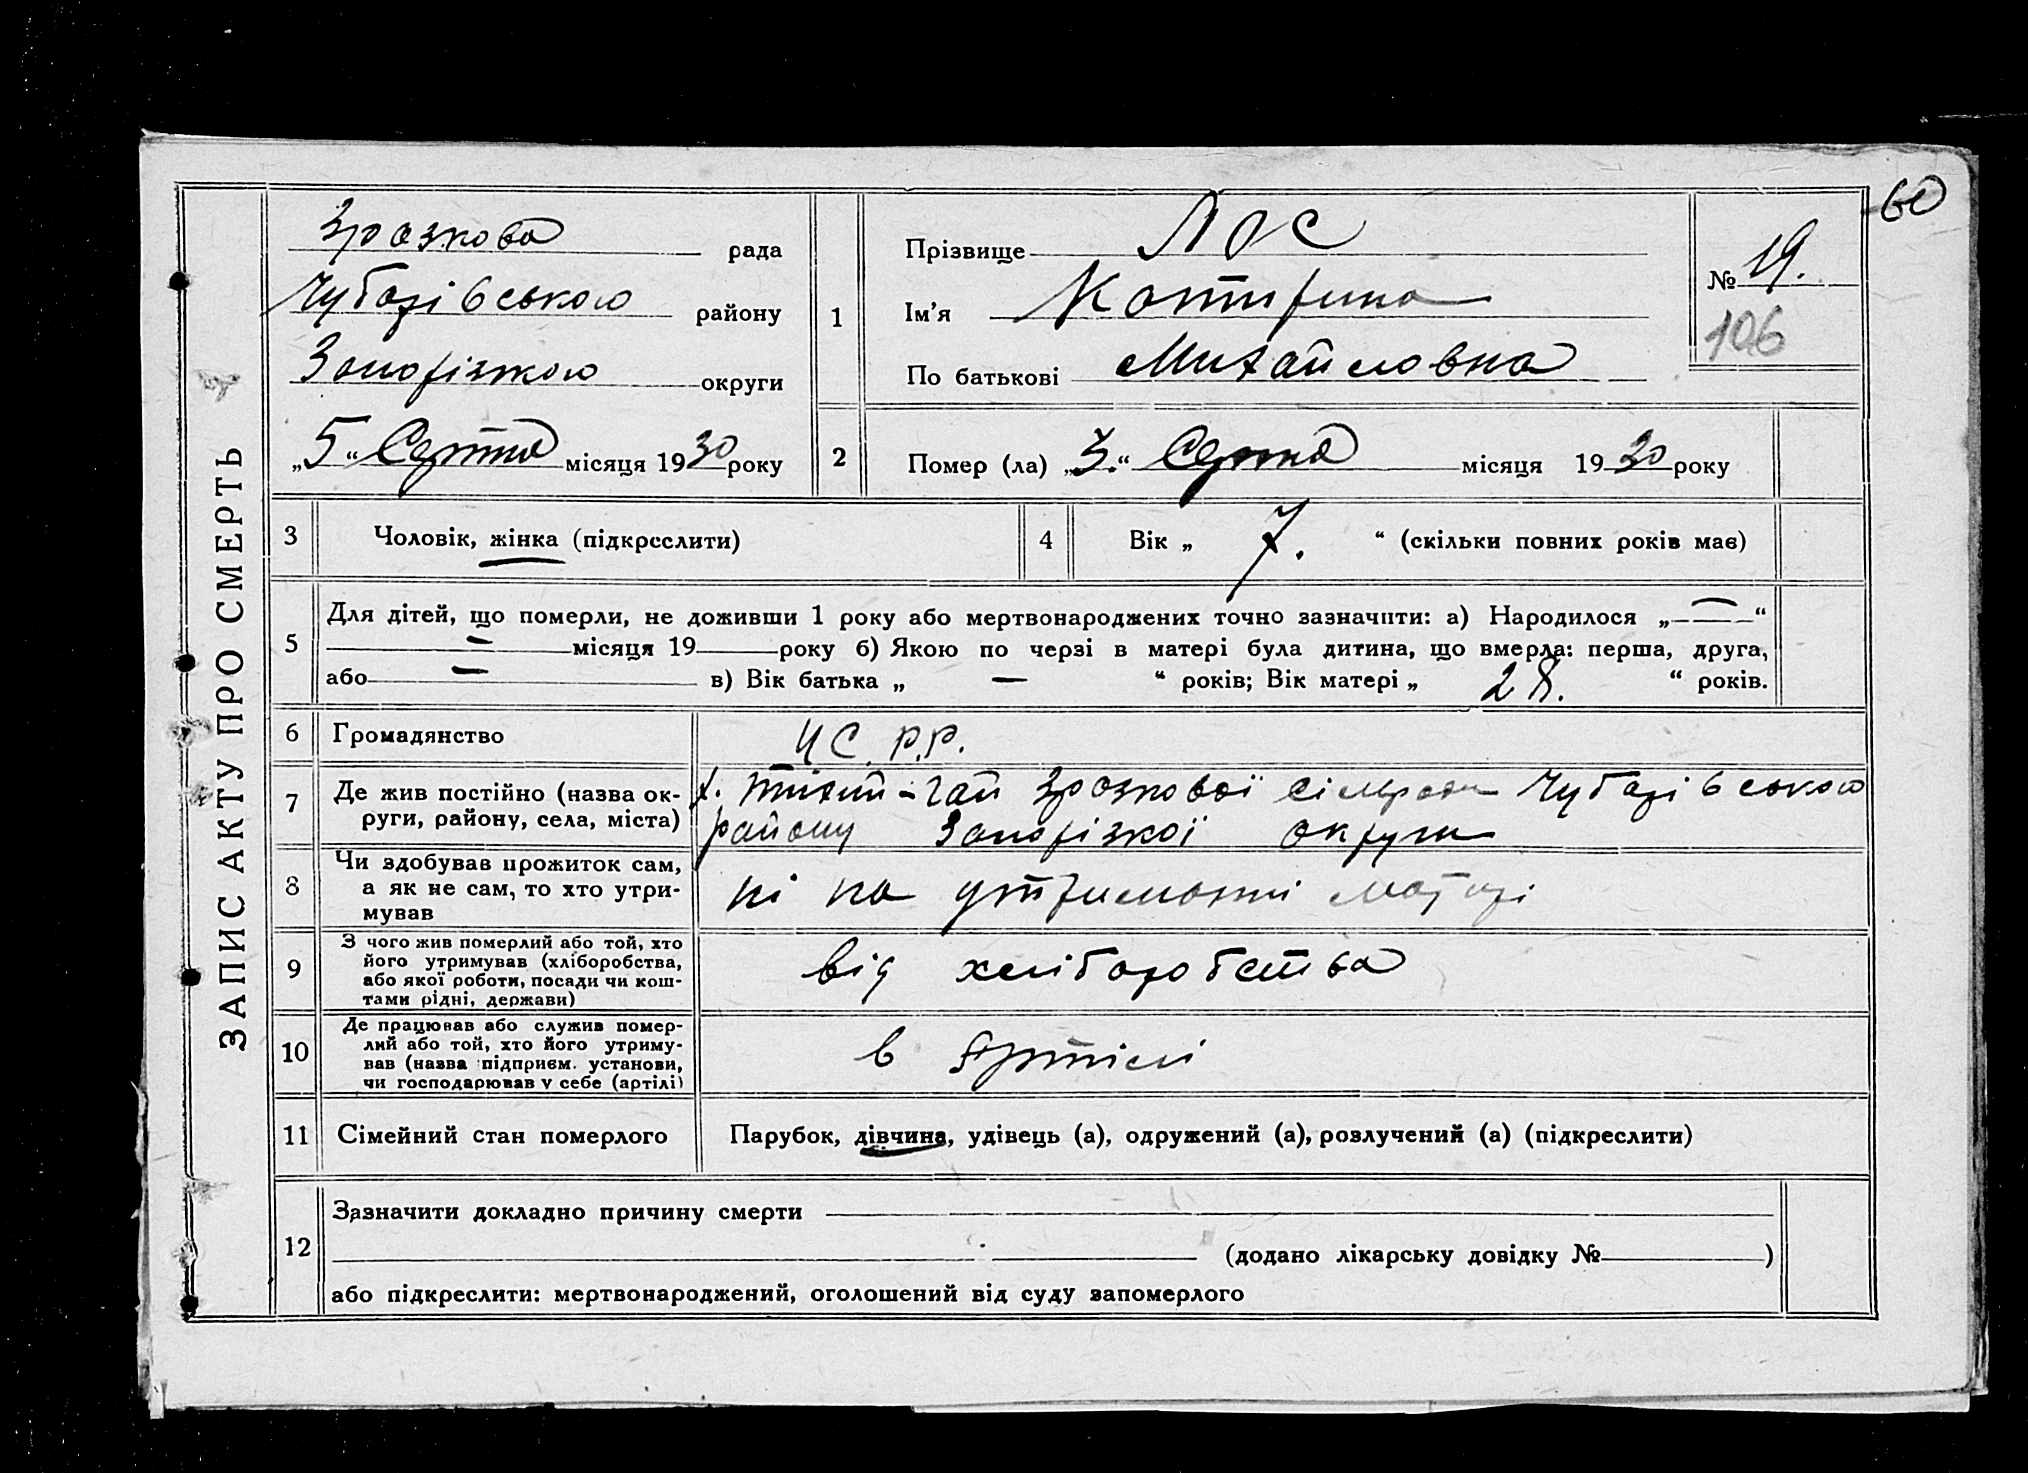 60
ЗАПИС АКТУ ПРО СМЕРТЬ
Зразкова рада
Чубарівського району
Запорізкою округи
„5“ Серпня місяця 1930 року
1
Прізвище Лос
Ім'я Катирина
По батькові Михайловна
№ 19.
106
2
Помер (ла) „3.“ Серпня місяця 1930 року
3
Чоловік, жінка (підкреслити)
4
Вік „ 7. “ (скільки повних років має)
5
Для дітей, що померли, не доживши 1 року або мертвонароджених точно зазначити: а) Народилося „ — “
— місяця 19 року б) Якою по черзі в матері була дитина, що вмерла: перша, друга,
або — в) Вік батька „ — “ років; Вік матері „ 28. “ років.
6
Громадянство
УС.Р.Р.
7
Де жив постійно (назва ок-
руги, району, села, міста)
х. -Гай Зразкової сільради Чубарівською
району Запорізкої округи
8
Чи здобував прожиток сам,
а як не сам, то хто утри-
мував
ні на утриманні матері
9
З чого жив померлий або той, хто
його утримував (хліборобства,
або якої роботи, посади чи кош-
тами рідні, держави)
від хліборобства
10
Де працював або служив помер-
лий або той, хто його утриму-
вав (назва підприєм. установи,
чи господарював у себе (артілі)
в Артілі
11
Сімейний стан померлого
Парубок, дівчина, удівець (а), одружений (а), розлучений (а) (підкреслити)
12
Зазначити докладно причину смерти
(додано лікарську довідку № )
або підкреслити: мертвонароджений, оголошений від суду запомерлого